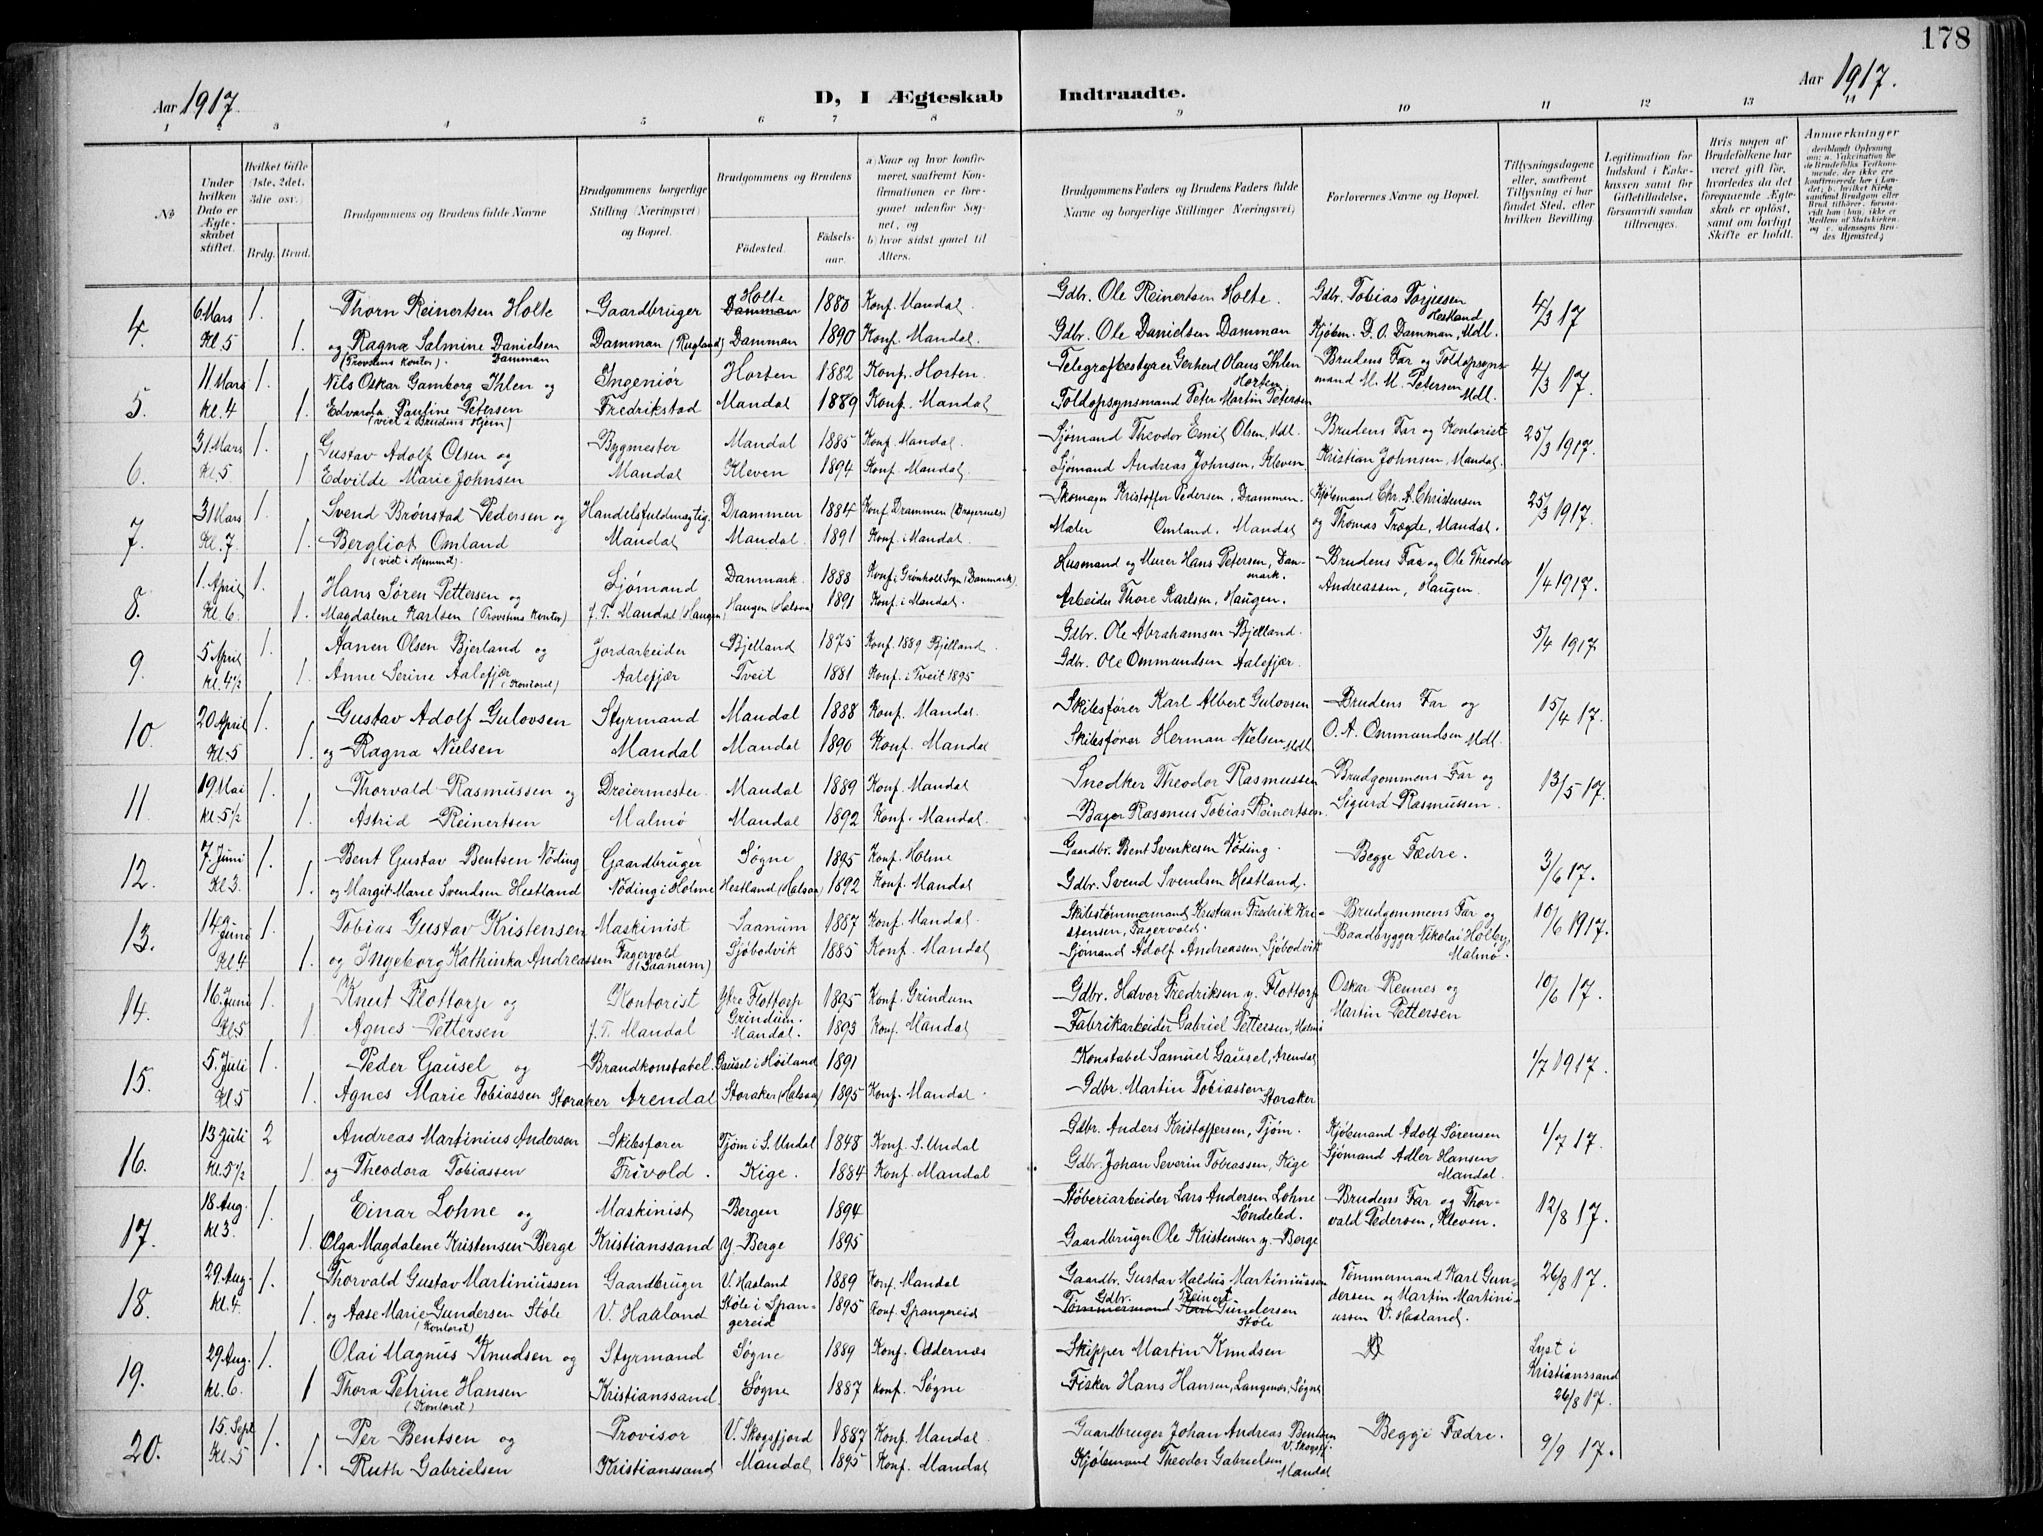 178
Aar 1917.
D, I Ægteskab Indtraadte.
Aar 1917.
1 2 3 4 5 6 7 8 9 10 11 12 13 11
№
Under hvilken Dato er Ægteskabet stiftet.
Hvilket Gifte (1ste, 2det, 3die osv.)
Brdg. Brud.
Brudgommens og Brudens fulde Navne
Brudgommens borgerlige Stilling (Næringsvei) og Bopæl.
Brudgommens og Brudens
Fødested. Fødselsaar.
a) Naar og hvor konfirmeret, saafremt Konfirmationen er foregaaet udenfor Sognet, og
b) hvor sidst gaaet til Alters.
Brudgommens Faders og Brudens Faders fulde Navne og borgerlige Stillinger (Næringsvei)
Forlovernes Navne og Bopæl.
Tillysningsdagene eller, saafremt Tillysning ei har fundet Sted, efter hvilken Bevilling.
Legitimation for Indskud i Enkekassen samt for Giftetilladelse, forsaavidt saadan tiltrænges.
Hvis nogen af Brudefolkene har været gift før, hvorledes da det foregaaende Ægteskab er opløst, samt om lovligt Skifte er holdt.
Anmerkninger (deriblandt Oplysning om: a. Vakcination for de Brudefolks Vedkommende, der ikke ere konfirmerede her i Landet; b. hvilket Kirkesamfund Brudgom eller Brud tilhører, forsaavidt han (hun) ikke er Medlem af Statskirken, og c. udensogns Brudes Hjemsted.)
4. 6 Mars 1. Thorn Reinertsen Holte Gaardbruger Holte Damman 1880 Konf. Mandal. Gdbr. Ole Reinertsen Holte. Gdbr. Tobias Torjussen Hestland 4/3 17
Kl. 5 1. og Ragna Salmine Danielsen Damman Damman (Rugland) Damman 1890 Konf. Mandal. Gdbr. Ole Danielsen Damman Kjøbm. D. O. Damman, Mdl.
(Provstens Kontor).
5. 11 Mars 1. Nils Oskar Gamborg Ihlen og Ingeniør Horten 1882 Konf. Horten. Telegrafbestyrer Gerhard Olaus Ihlen Horten Brudens Far og Toldopsynsmand M. M. Petersen Mdl. 4/3 17.
Kl. 4 1. Edvarda Pauline Petersen Fredrikstad Mandal 1889 Konf. Mandal Toldopsynsmand Peter Martin Petersen
(viet i Brudens Hjem)
6. 31 Mars 1. Gustav Adolf Olsen og Bygmester Mandal 1885 Konf. Mandal. Sjømand Theodor Emil Olsen, Mdl. Brudens Far og Kontorist 25/3 1917.
Kl. 5 1 Edvilde Marie Johnsen Mandal Kleven 1894 Konf. Mandal. Sjømand Andreas Johnsen, Kleven Kristian Johnsen, Mandal.
7. 31 Mars 1. Svend Brønstad Pedersen og Handelsfuldmægtig. Drammen 1884 Konf. Drammen (Bragernæs) Skomager Kristoffer Pedersen, Drammen. Kjøbmand Chr. A. Christensen 25/3 1917.
Kl. 7 1. Bergliot Omland Mandal Mandal. 1891 Konf. i Mandal. Maler Omland, Mandal og Thomas Trægde, Mandal.
(viet i Hjemmet)
8. 1. April 1. Hans Søren Pettersen og Sjømand Danmark. 1888 Konf. i Grønholt Sogn (Danmark). Husmand og Murer Hans Petersen, Danmark. Brudens Far og Ole Theodor 1/4 1917.
Kl. 6. 1. Magdalene Karlsen (Provstens Kontor) f. T. Mandal (Haugen) Haugen (Halsaa) 1891 Konf. i Mandal. Arbeider Thore Karlsen, Haugen. Andreassen, Haugen.
9. 5 April 1. Aanen Olsen Bjerland og Jordarbeider Bjelland 1875 Konf. 1889 Bjelland. Gdbr. Ole Abrahamsen Bjelland. 5/4 1917
Kl. 4½ 1. Anne Serine Aalefjær (Kontoret) Aalefjær Tveit 1881 Konf. i Tveit 1895 Gdbr. Ole Ommundsen Aalefjær.
10. 20 April 1. Gustav Adolf Gulovsen Styrmand Mandal 1888 Konf. Mandal. Skibsfører Karl Albert Gulovsen Brudens Far og 15/4 17.
Kl. 5 1. og Ragna Nielsen Mandal Mandal 1890 Konf. Mandal Skibsfører Herman Nielsen Mdl. O. A. Ommundsen Mdl.
11. 19 Mai 1. Thorvald Rasmussen og Dreiermester. Mandal 1889 Konf. Mandal Snedker Theodor Rasmussen Brudgommens Far og 13/5 17.
Kl. 5½ 1. Astrid Reinertsen Malmø Mandal 1892 Konf. Mandal. Bager Rasmus Tobias Reinertsen. Sigurd Rasmussen.
12. 7. Juni 1. Bent Gustav Bentsen Nöding Gaardbruger Søgne 1895 Konf. Holme Gaardbr. Bent Svenkesen Nöding. Begge Fædre. 3/6 17.
Kl 3. 1. og Margit Marie Svendsen Hestland Nöding i Holme Hestland (Halsaa) 1892 Konf. Mandal Gdbr. Svend Svendsen Hestland.
13. 14 Juni 1. Tobias Gustav Kristensen Maskinist Saanum 1887 Konf. Mandal. Skibstømmermand Kristian Fredrik Kristensen, Fagervold. Brudgommens Far og 10/6 1917.
Kl. 4 1. og Ingeborg Kathinka Andreassen Fagervold (Saanum) Sjøbodvik 1885 Konf. Mandal Sjømand Adolf Andreassen, Sjøbodvik Baadbygger Nikolai Holby, Malmø.
14. 16. Juni 1. Knut Flottorp og Kontorist Ytre Flottorp Grindum. 1895 Konf. Grindum Gdbr. Halvor Fredriksen y. Flottorp Oskar Rennes og 10/6 17.
Kl. 5 1 Agnes Pettersen f. T. Mandal Mandal. 1893 Konf. Mandal Fabrikarbeider Gabriel Pettersen, Malmø Martin Pettersen
15. 5. Juli 1. Peder Gausel og Brandkonstabel. Gausel i Høiland 1891 Konstabel Samuel Gausel, Arendal 1/7 1917.
Kl. 5 1. Agnes Marie Tobiassen Storaker Arendal Storaker (Halsaa) 1895 Konf. Mandal. Gdbr. Martin Tobiassen Storaker
16. 13 Juli 2 Andreas Martinius Andersen Skibsfører Tjøm i S. Undal 1848 Konf. S. Undal Gdbr. Anders Kristoffersen, Tjøm. Kjøbmand Adolf Sørensen 1/7 17.
Kl. 5½ 1. og Theodora Tobiassen Frivold. Kige. 1884 Konf. Mandal Gdbr. Johan Severin Tobiassen, Kige Sjømand Adler Hansen Mandal.
17. 18 Aug. 1. Einar Lohne og Maskinist Bergen 1894 Støberiarbeider Lars Andersen Lohne Søndeled. Brudens Far og Thorvald Pedersen, Kleven. 12/8 17.
Kl 3. 1. Olga Magdalene Kristensen Berge Kristianssand y Berge 1895 Gaardbruger Ole Kristensen y. Berge
18. 29. Aug. 1. Thorvald Gustav Martiniussen Gaardbruger V. Haaland 1889 Konf. Mandal Gaardbr. Gustav Haldus Martiniussen Tømmermand Karl Gundersen og Martin Martiniussen V. Haaland. 26/8 17.
Kl. 4. 1. og Aase Marie Gundersen Støle (Kontoret) V. Haaland Støle i Spangereid 1895 Konf. Spangereid Gdbr. Reinert Tømmermand Karl Gundersen Støle
19. 29 Aug. 1. Olai Magnus Knudsen og Styrmand Søgne 1889 Konf. Oddernæs Skipper Martin Knudsen Lyst i Kristianssand 26/8 17.
Kl. 6. 1 Thora Petrine Hansen (Kontoret) Kristianssand. Søgne 1887 Konf. Søgne Fisker Hans Hansen, Langenes, Søgne
20. 15. Sept 1. Per Bentsen og Provisor V. Skogsfjord 1887 Konf. Mandal Gaardbruger Johan Andreas Bentsen V. Skogsfj. Begge Fædre. 9/9 17.
Kl. 5 1. Ruth Gabrielsen Kristianssand Mandal 1895 Konf. Mandal Kjøbmand Theodor Gabrielsen Mandal